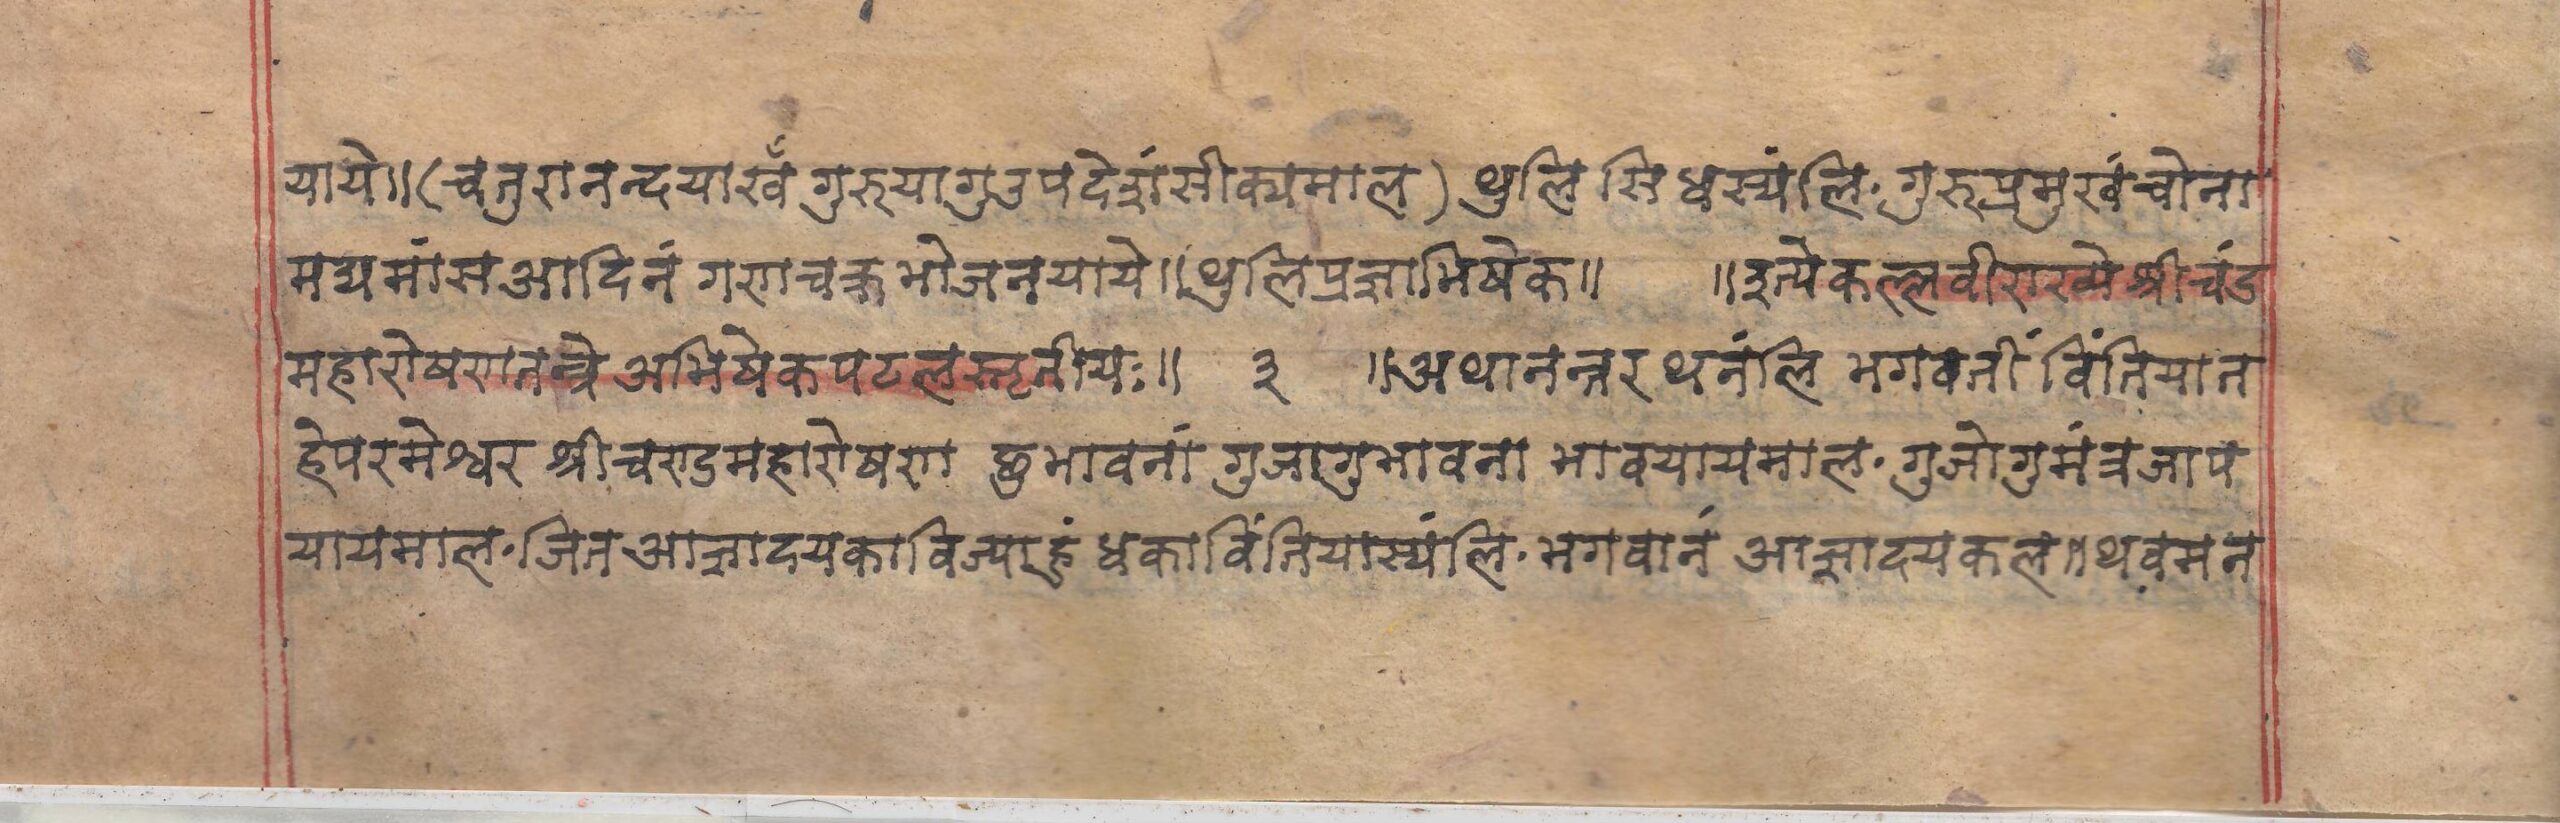 याये॥(चतुरानन्दयाखँ गुरुयागु उपदेशंसीक्यमाल) थुलि सिधस्यंलि॰ गुरुप्रमुखंचोना
मद्यमांस आदिनं गणचक्रभोजनयाये॥(थुलिप्रज्ञाभिषेक॥ ॥इत्येकल्लवीराख्ये श्रीचंड
महारोषणतन्त्रे अभिषेकपटलस्तृतीयः॥ ३ ॥अथानन्तर थनंलि भगवतीं विंतियात
हेपरमेश्वर श्रीचण्डमहारोषण छुभावनां गुजागुभावना भावयायमाल॰ गुजोगुमंत्रजाप
यायमाल॰ जित आज्ञादयकाविज्याहुं धकाविंतियास्यंलि॰ भगवानं आज्ञादयकल॥थवमन